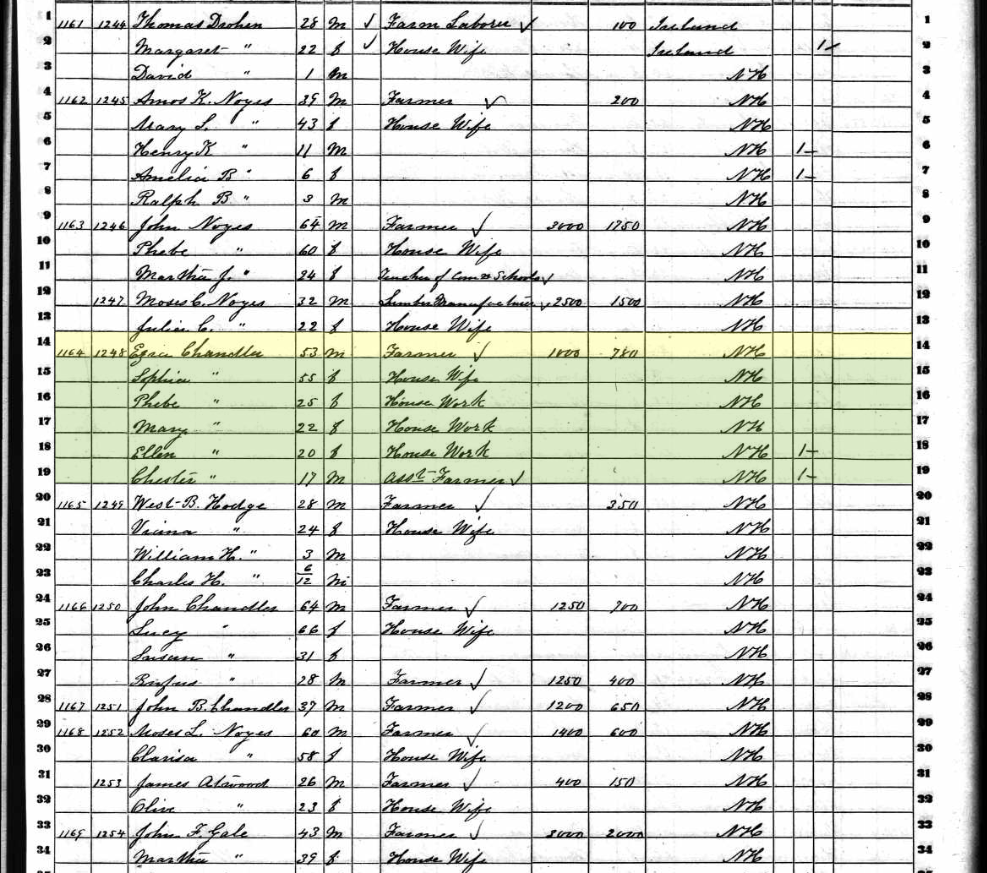 1 1161 1244 Thomas Drohen 28 M ✓ Farm Laborer ✓ 100 Ireland 1
2 Margaret " 22 f ✓ House Wife Ireland 1 2
3 David " 1 M NH 3
4 1162 1245 Amos K. Noyes 39 M Farmer ✓ 200 NH 4
5 Mary L. " 43 f House Wife NH 5
6 Henry K " 11 M NH 1 6
7 Amelia B " 6 f NH 1 7
8 Ralph B " 3 M NH 8
9 1163 1246 John Noyes 64 M Farmer ✓ 3000 1750 NH 9
10 Phebe " 60 f House Wife NH 10
11 Martha J. " 24 f Teacher of Com Schools ✓ NH 11
12 1247 Moses C. Noyes 32 M Lumber Manufacturer ✓ 2500 1500 NH 12
13 Julia C. " 22 f House Wife NH 13
14 1164 1248 Ezra Chandler 53 m Farmer ✓ 1000 780 NH 14
15 Sophia " 55 f House Wife NH 15
16 Phebe " 25 f House Work NH 16
17 Mary " 22 f House Work NH 17
18 Ellen " 20 f House Work NH 1 18
19 Chester " 17 M Asst Farmer ✓ NH 1 19
20 1165 1249 West B. Hodge 28 M Farmer ✓ 350 NH 20
21 Vicina " 24 f House Wife NH 21
22 William H. " 3 M NH 22
23 Charles H. " 6/12 M NH 23
24 1166 1250 John Chandler 64 M Farmer ✓ 1250 700 NH 24
25 Lucy " 66 f House Wife NH 25
26 Susan " 31 f NH 26
27 Rufus " 28 M Farmer ✓ 1250 400 NH 27
28 1167 1251 John B. Chandler 37 M Farmer ✓ 1200 650 NH 28
29 1168 1252 Moses L. Noyes 60 M Farmer ✓ 1400 600 NH 29
30 Clarisa " 58 f House Wife NH 30
31 1253 James Atwood 26 M Farmer ✓ 400 150 NH 31
32 Olive " 23 f House Wife NH 32
33 1169 1254 John F. Gale 43 M Farmer ✓ 3000 2000 NH 33
34 Martha " 39 f House Wife NH 34